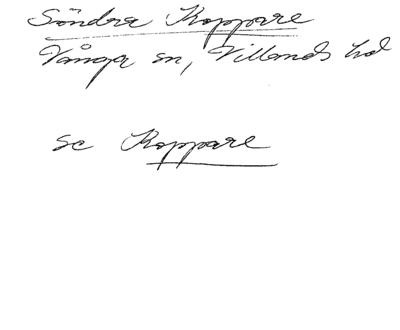 Söndra Koppare
Vånga sn, Villands hd
se Koppare